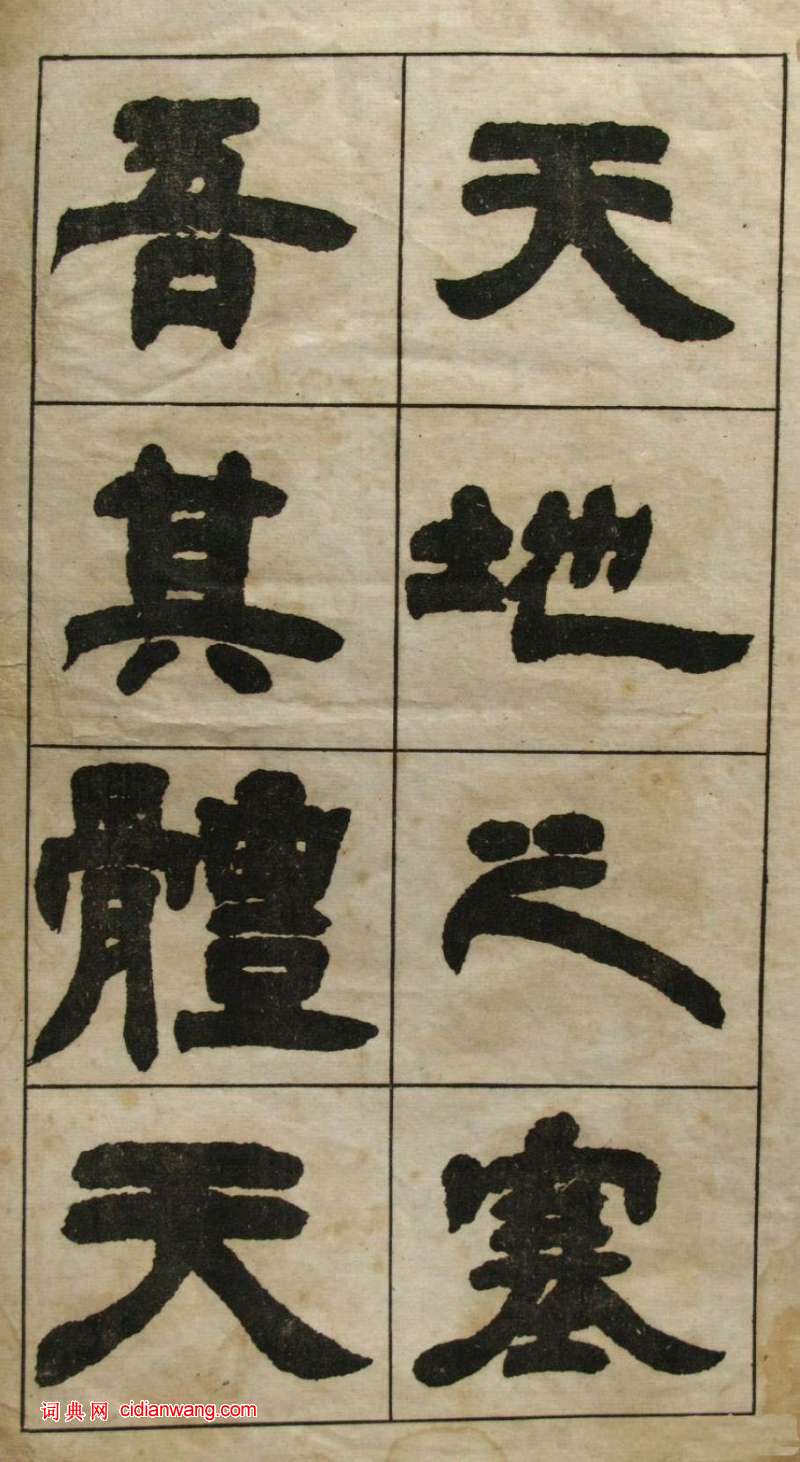 天地之塞
吾其體天
词典网 cidianwang.com